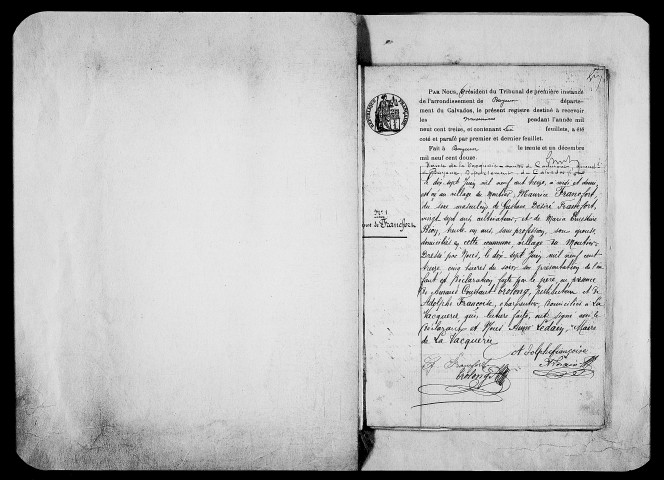 PAR NOUS, Président du Tribunal de première instance
de l'arrondissement de Bayeux départe-
ment du Calvados, le présent registre destiné à recevoir
les naissances pendant l'année mil
neuf cent treize, et contenant feuillets, a été
coté et parafé par premier et dernier feuillet.
Fait à Bayeux le trente et un décembre
mil neuf cent douze.
Mairie de la Vacquerie canton de Caumont,
de Bayeux Département du Calvados
RÉPUBLIQUE FRANÇAISE
N° 1
de Francfort
Le dix sept Juin mil neuf cent treize, à midi et demi
est né au village du Maurice Francfort,
du sexe masculin de Gustave Désiré Francfort,
vingt sept ans, cultivateur, et de Maria
trente un ans, sans profession, son épouse
domiciliés en cette commune village du
Dressé par Nous, le dix sept Juin mil neuf cent
treize cinq heures du soir, sur présentation de l'en
fant et Déclaration faite par le père, en présence
De Constant Crolong, Instituteur et de
Adolphe Françoise, charpentier, Domiciliés à La
Vacquerie qui, lecture faite, ont signé avec le
Déclarant et Nous Ledain, Maire
de La Vacquerie
Adolphe françoise
Francfort
Crolong